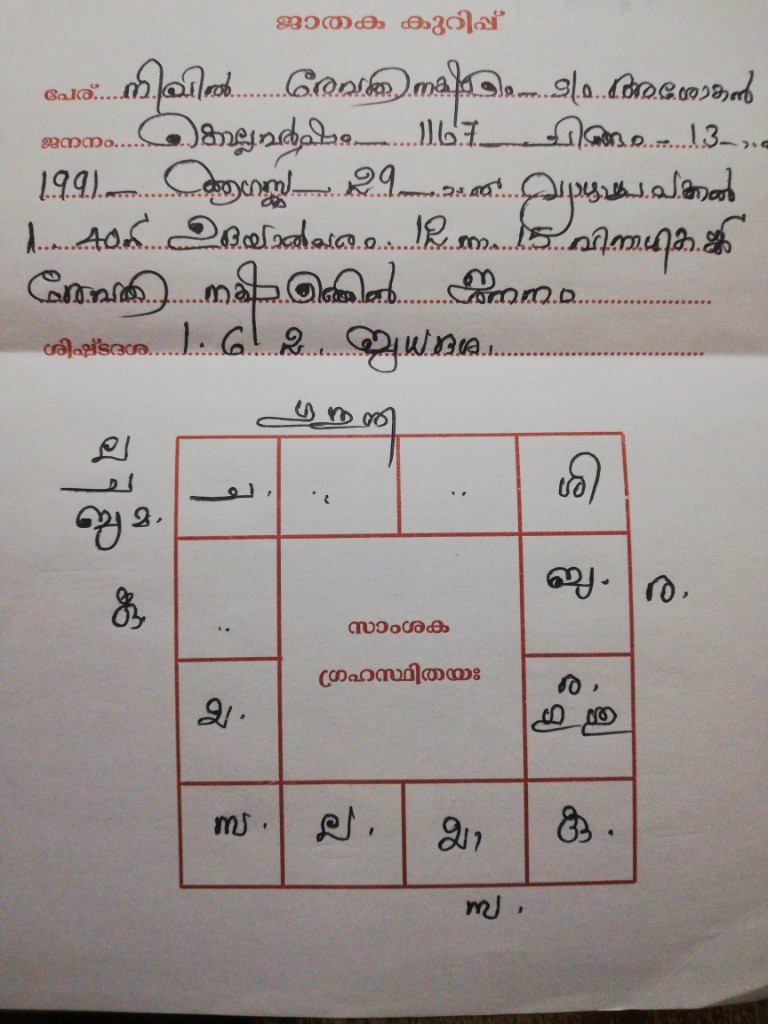 ജാതക കുറിപ്പ്
പേര് നിവിൻ രേവതി നക്ഷത്രം S/o അശോകൻ
ജനനം കൊല്ലവർഷം 1167 ചിങ്ങം - 13
1991 ആഗസ്റ്റ് 29 വ്യാഴാഴ്ച പകൽ
1. 40ന് ഉദയാൽപരം 12 നാ. 15 വിനാഴിക
രേവതി നക്ഷത്രത്തിൽ ജനനം
ശിഷ്ടദശ 1. 6 2. ബുധദശ.
ഗു
ല
ച
ബു മ.
ച. ശി
കു ബു. ര.
സാംശക
ഗ്രഹസ്ഥിതയഃ
ര.
ഗു
സ. ല. കു.
സ.